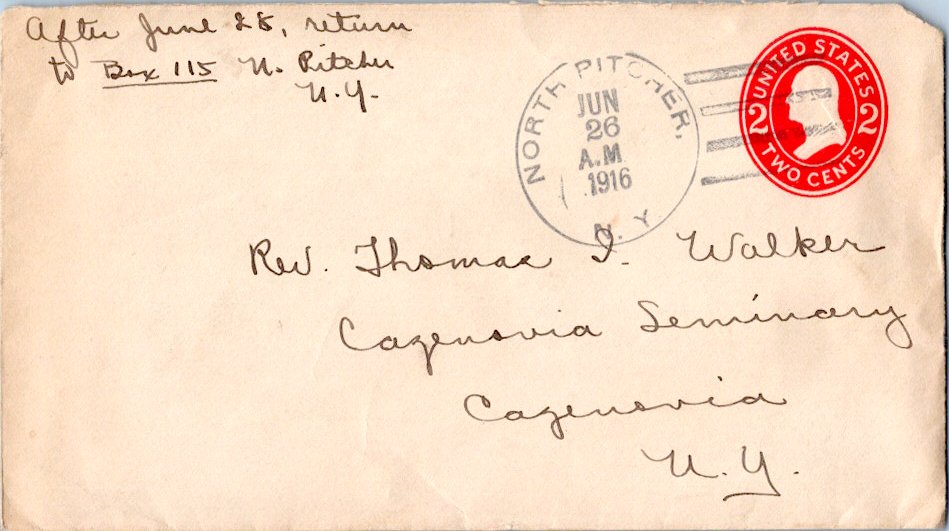 After June 28, return
to Box 115 N. Pitcher
N.Y.
NORTH PITCHER,
JUN
26
A.M.
1916
N.Y.
UNITED STATES
2 2
TWO CENTS
Rev. Thomas I. Walker
Cazenovia Seminary
Cazenovia
N.Y.